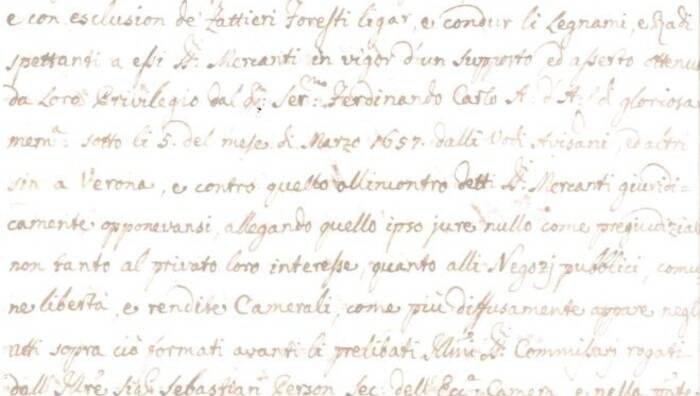 e con esclusion de Zattieri Foresti ligar, e condur li Legnami, e Zadi
spettanti a essi SS.ri Mercanti in vigor d'un supposto ed asserto ottenu
da loro Privilegio dal Ser.mo Ferdinando Carlo A. d'A. di gloriosa
mem.a sotto li 5. del mese di Marzo 1657. dalli Vodi Avisani, ed altri
sin a Verona, e contro quello all'incontro detti SS.ri Mercanti giuridi=
camente opponevansi, allegando quello ipso jure nullo come pregiudizial
non tanto al privato loro interesse, quanto alli Negozj pubblici, com
ne libertà, e rendite Camerali, come più diffusamente appare negl
Atti sopra ciò formati avanti li prelibati Commissarj rogati
dall' Sig. Sebastian Person Sec. dell' Ecc.a Camera, e nella